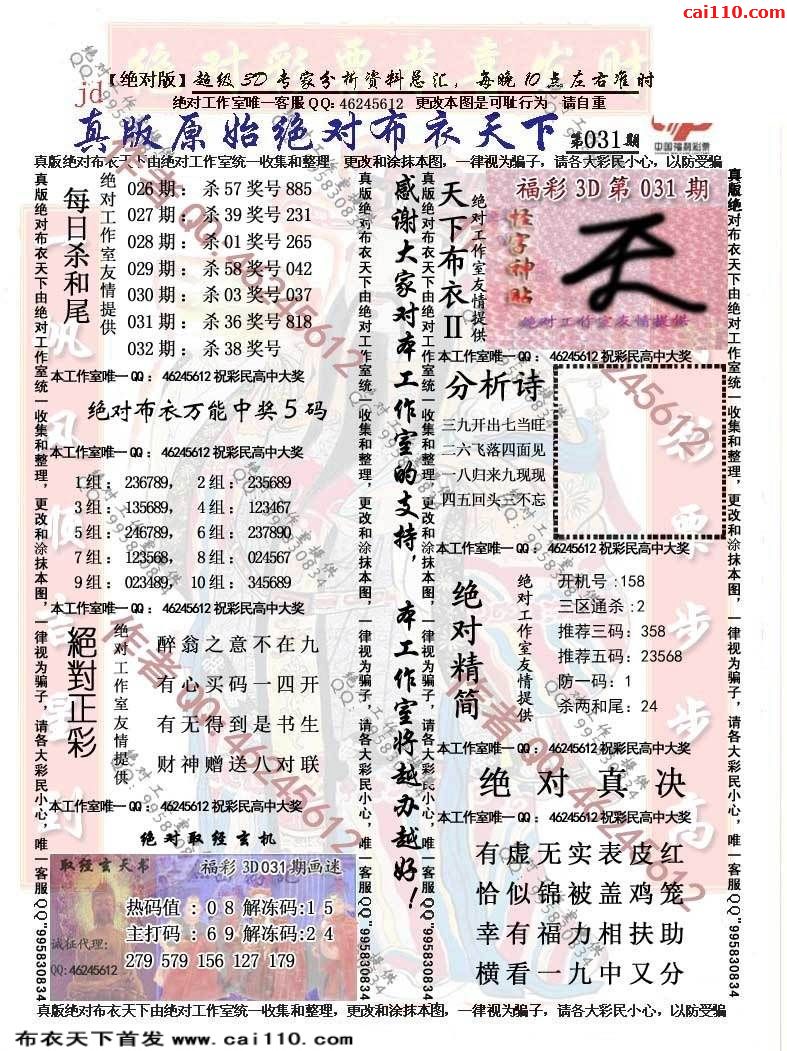 cai110.com
【绝对版】超级3D专家分析资料总汇，每晚10点左右准时
jd
绝对工作室唯一客服QQ:46245612 更改本图是可耻行为 请自重
真版原始绝对布衣天下 第031期
中国福利彩票
真版绝对布衣天下由绝对工作室统一收集和整理，更改和涂抹本图，一律视为骗子，请各大彩民小心，以防受骗
每日杀和尾
绝对工作室友情提供
026期：杀57奖号885
027期：杀39奖号231
028期：杀01奖号265
029期：杀58奖号042
030期：杀03奖号037
031期：杀36奖号818
032期：杀38奖号
本工作室唯一QQ：46245612祝彩民高中大奖
绝对布衣万能中奖5码
本工作室唯一QQ：46245612祝彩民高中大奖
1组：236789， 2组：235689
3组：135689， 4组：123467
5组：246789， 6组：237890
7组：123568， 8组：024567
9组：023489， 10组：345689
本工作室唯一QQ：46245612祝彩民高中大奖
絕對正彩
绝对工作室友情提供
醉翁之意不在九
有心买码一四开
有无得到是书生
财神赠送八对联
本工作室唯一QQ：46245612祝彩民高中大奖
绝对取经玄机
取经玄天书 福彩3D031期画迷
热码值：08解冻码:15
主打码：69解冻码:24
279 579 156 127 179
诚征代理:
QQ:46245612
感谢大家对本工作室的支持，本工作室将越办越好！
天下布衣II
绝对工作室友情提供
福彩3D第031期
怪字神贴
绝对工作室友情提供
本工作室唯一QQ：46245612祝彩民高中大奖
分析诗
三九开出七当旺
二六飞落四面见
一八归来九现现
四五回头三不忘
本工作室唯一QQ：46245612祝彩民高中大奖
绝对精简
绝对工作室友情提供
开机号:158
三区通杀:2
推荐三码:358
推荐五码:23568
防一码:1
杀两和尾:24
本工作室唯一QQ：46245612祝彩民高中大奖
绝对真决
本工作室唯一QQ：46245612祝彩民高中大奖
有虚无实表皮红
恰似锦被盖鸡笼
幸有福力相扶助
横看一九中又分
真版绝对布衣天下由绝对工作室统一收集和整理，更改和涂抹本图，一律视为骗子，请各大彩民小心，唯一客服QQ"995830834
真版绝对布衣天下由绝对工作室统一收集和整理，更改和涂抹本图，一律视为骗子，请各大彩民小心，唯一客服QQ"995830834
真版绝对布衣天下由绝对工作室统一收集和整理，更改和涂抹本图，一律视为骗子，请各大彩民小心，唯一客服QQ"995830834
真版绝对布衣天下由绝对工作室统一收集和整理，更改和涂抹本图，一律视为骗子，请各大彩民小心，唯一客服QQ"995830834
真版绝对布衣天下由绝对工作室统一收集和整理，更改和涂抹本图，一律视为骗子，请各大彩民小心，以防受骗
作者QQ:46245612
布衣天下首发 www.cai110.com